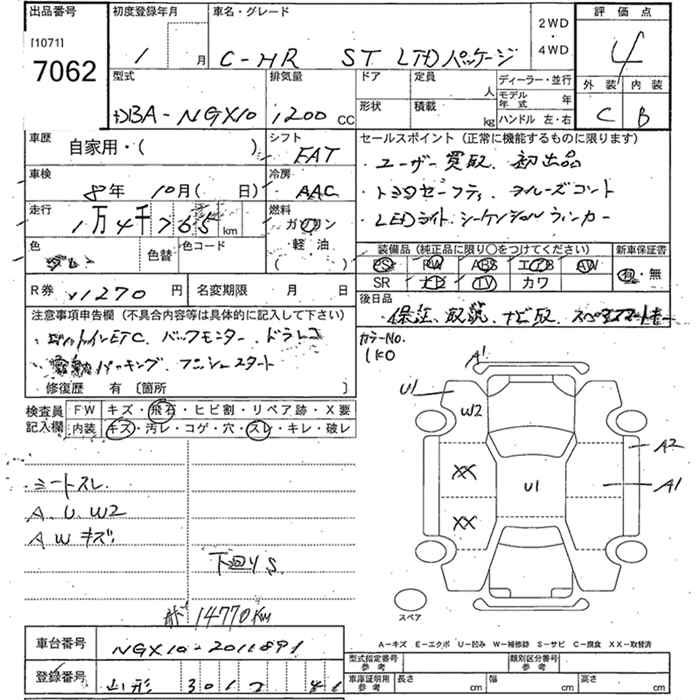 出品番号
[1071]
7062
初度登録年月
1 月
車名・グレード
C-HR ST LTDパッケージ
2WD
・
4WD
評価点
4
外装 内装
C B
型式
DBA-NGX10
排気量
1200 CC
ドア
形状
定員 人
積載 kg
ディーラー・並行
モデル年式 年
ハンドル 左・右
車歴
自家用・( )
シフト
FAT
車検
8年 10月( 日)
冷房
AAC
走行
1万4千765 km
燃料
ガソリン
軽油
( )
色
色替
色コード
セールスポイント(正常に機能するものに限ります)
・ユーザー買取、初出品
・トヨタセーフティ、クルーズコント
・LEDライト、シーケンシャルウィンカー
装備品(純正品に限り○をつけてください)
PS PW ABS エアB AW
SR ナビ TV カワ
新車保証書
有・無
R券 ¥11270 円
名変期限 月 日
後日品
保証、取説、ナビ取、スペア
注意事項申告欄(不具合内容等は具体的に記入して下さい)
ビルトインETC、バックモニター、ドラレコ
電動パーキング、プッシュスタート
修復歴 有 〔箇所 〕
カラーNo.
1K0
検査員
記入欄
FW キズ・飛石・ヒビ割・リペア跡・X要
内装 キズ・汚レ・コゲ・穴・スレ・キレ・破レ
シートスレ
A、U、W2
AWキズ
下回りS
14770Km
A1
U1
W2
A2
XX
U1
A1
XX
スペア
A－キズ E－エクボ U－凹み W－補修跡 S－サビ C－腐食 XX－取替済
車台番号
NGX10-2011891
登録番号
山形 301
型式指定番号
参考
類別区分番号
参考
車庫証明用
参考
長さ cm 幅 cm 高さ cm